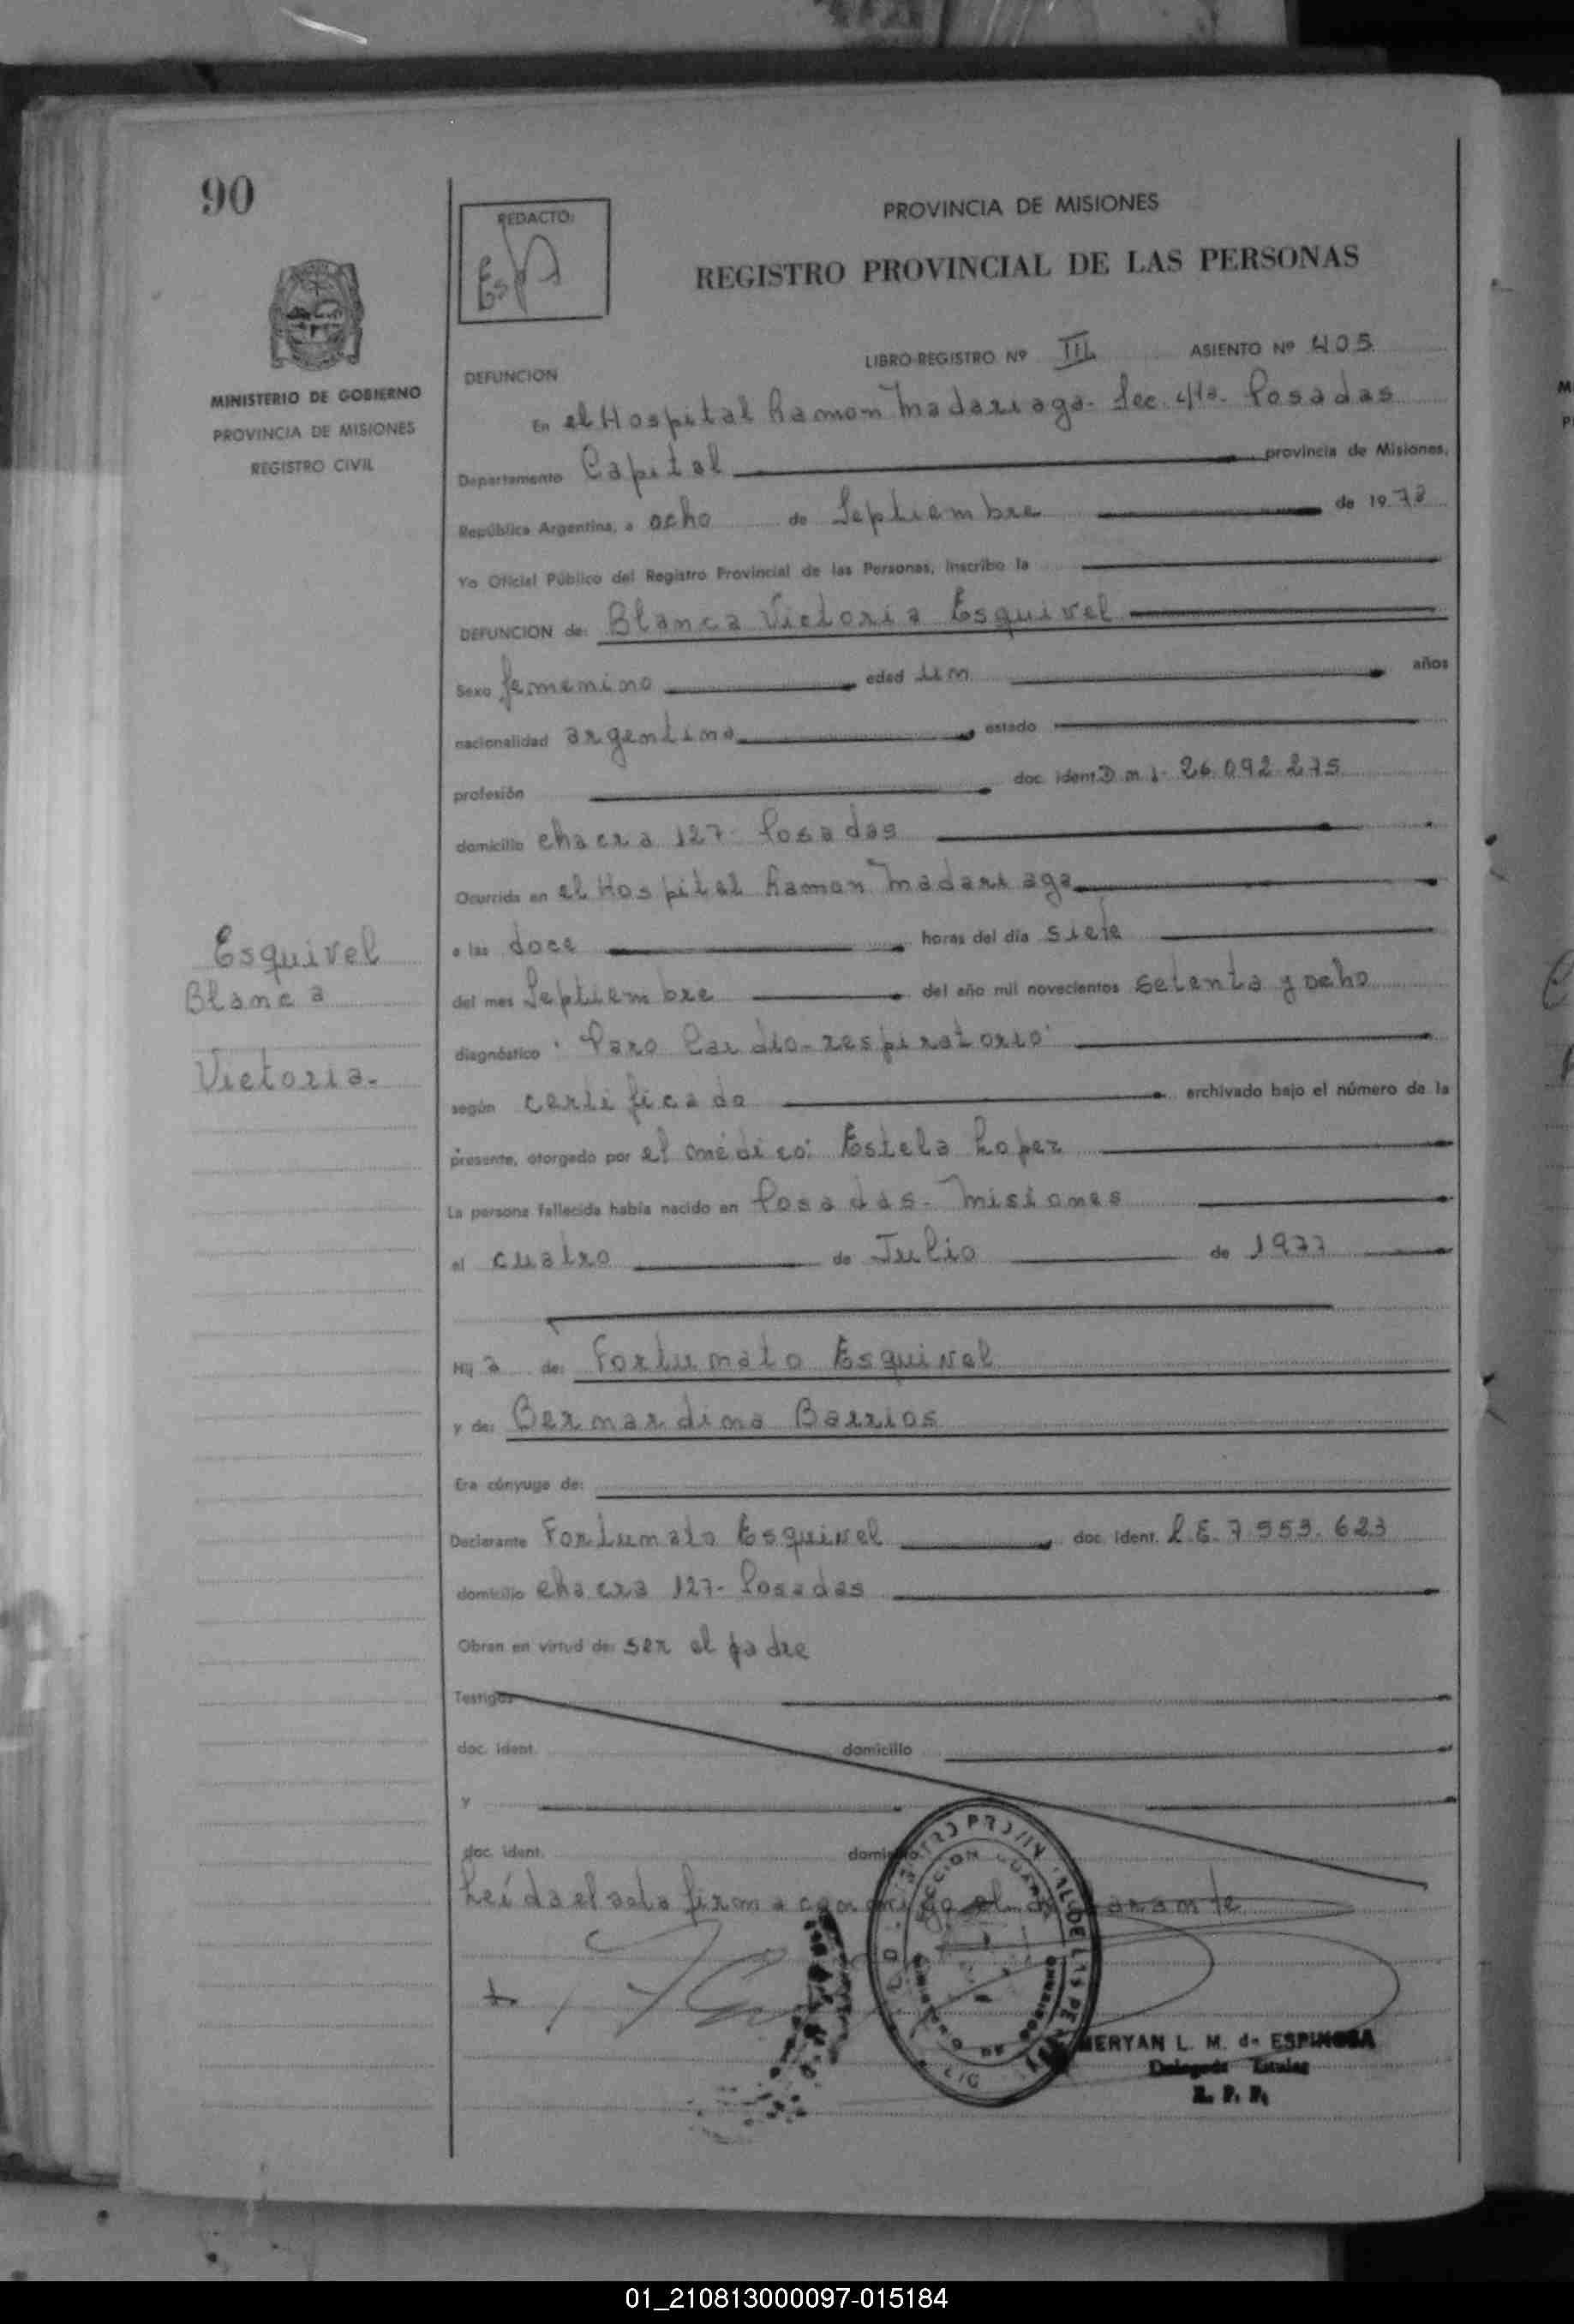 90
REDACTO:
Esp
PROVINCIA DE MISIONES
REGISTRO PROVINCIAL DE LAS PERSONAS
MINISTERIO DE GOBIERNO
PROVINCIA DE MISIONES
REGISTRO CIVIL
LIBRO-REGISTRO Nº III ASIENTO Nº 405
DEFUNCION
En el Hospital Ramon Madariaga- Sec. 4ta- Posadas
Departamento Capital provincia de Misiones,
República Argentina, a ocho de Septiembre de 1978
Yo Oficial Público del Registro Provincial de las Personas, inscribo la
DEFUNCION de: Blanca Victoria Esquivel
Sexo femenino edad un años
nacionalidad argentina estado
profesión doc. ident. D n i- 26.092.275
domicilio chacra 127- Posadas
Ocurrida en el Hospital Ramon Madariaga
a las doce horas del día siete
del mes Septiembre del año mil novecientos setenta y ocho
diagnóstico "Paro Cardio-respiratorio"
según certificado archivado bajo el número de la
presente, otorgado por el médico: Estela Lopez
La persona fallecida había nacido en Posadas- Misiones
el cuatro de Julio de 1977
Hij a de: Fortunato Esquivel
y de: Bernardina Barrios
Era cónyuge de:
Declarante Fortunato Esquivel doc. ident. L.E. 7.553.623
domicilio chacra 127- Posadas
Obran en virtud de: ser el padre
Testigos
doc. ident. domicilio
y
doc. ident.
Leída el acta firma conmigo el declarante
Esquivel
Blanca
Victoria.
MERYAN L. M. de ESPINOSA
Delegada Titular
R. P. P.
01_210813000097-015184